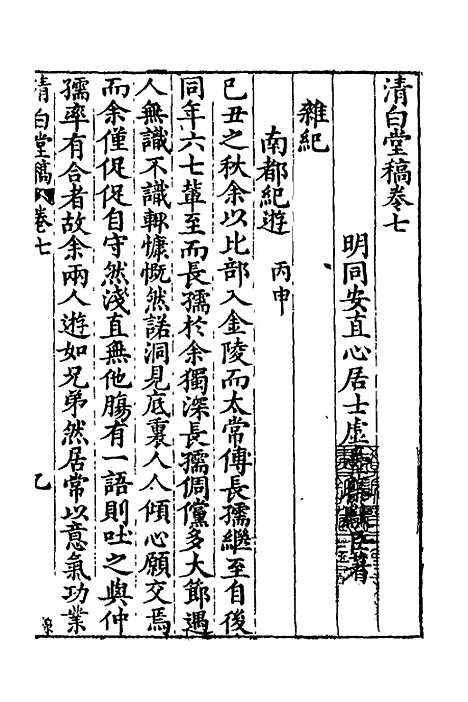 清白堂稿卷七
明同安直心居士虛臺蔡獻臣著
雜紀
南都紀遊 丙申
己丑之秋余以比部入金陵而太常傅長孺繼至自後
同年六七輩至而長孺於余獨深長孺倜儻多大節遇
人無識不識輒慷慨然諾洞見底裏人人傾心願交焉
而余僅促促自守然淺直無他膓有一語則吐之與仲
孺率有合者故余兩人遊如兄弟然居常以意氣功業
清白堂稿 卷七